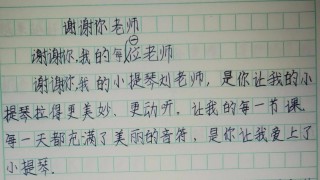 谢谢你老师
谢谢你,我的每一位老师
谢谢你我的小提琴刘老师，是你让我的小
提琴拉得更美妙、更动听，让我的每一节课、
每一天都充满了美丽的音符，是你让我爱上了
小提琴.